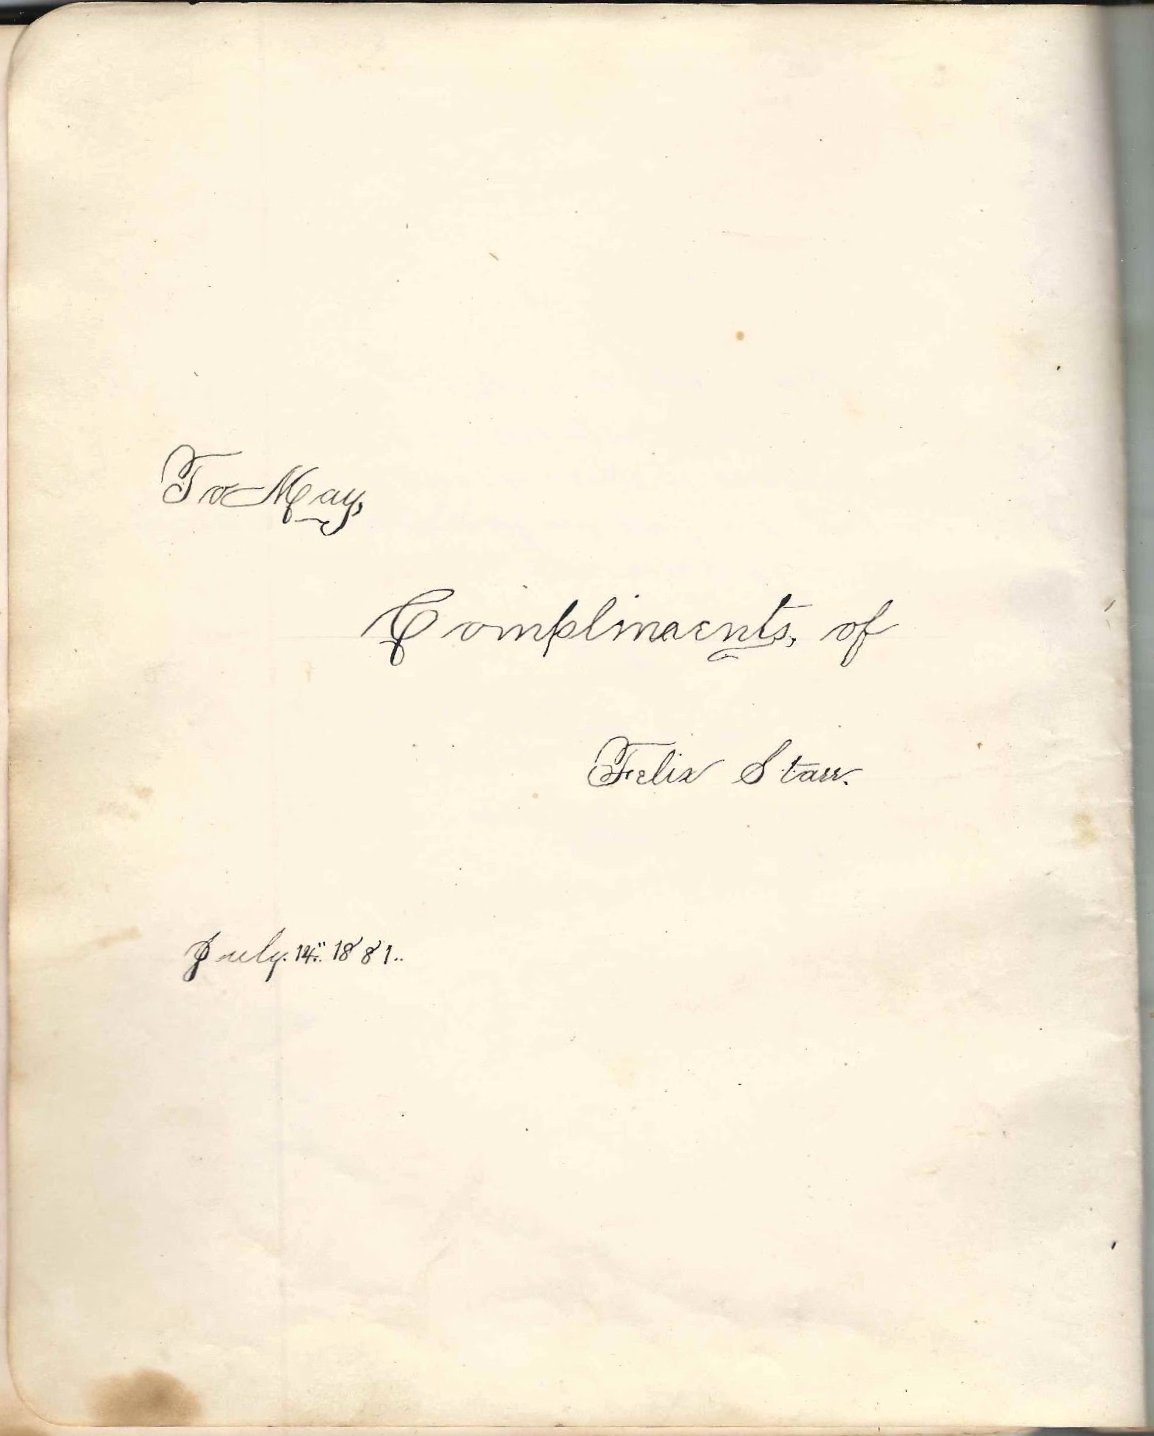 To May,
Compliments, of
Felix Starr.
July. 14". 1881..